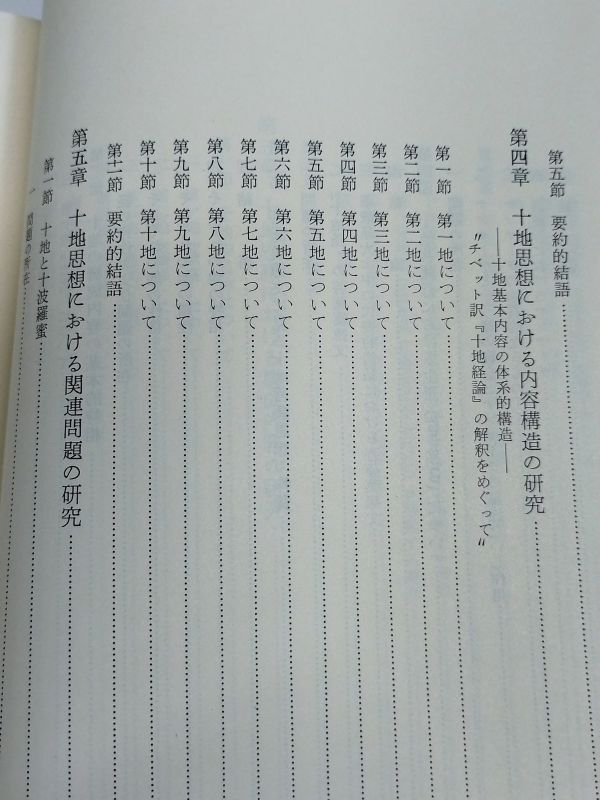 第五節 要約的結語
第四章 十地思想における内容構造の研究
――十地基本内容の体系的構造――
〝チベット訳『十地経論』の解釈をめぐって〟
第一節 第一地について
第二節 第二地について
第三節 第三地について
第四節 第四地について
第五節 第五地について
第六節 第六地について
第七節 第七地について
第八節 第八地について
第九節 第九地について
第十節 第十地について
第十一節 要約的結語
第五章 十地思想における関連問題の研究
第一節 十地と十波羅蜜
一 問題の所在